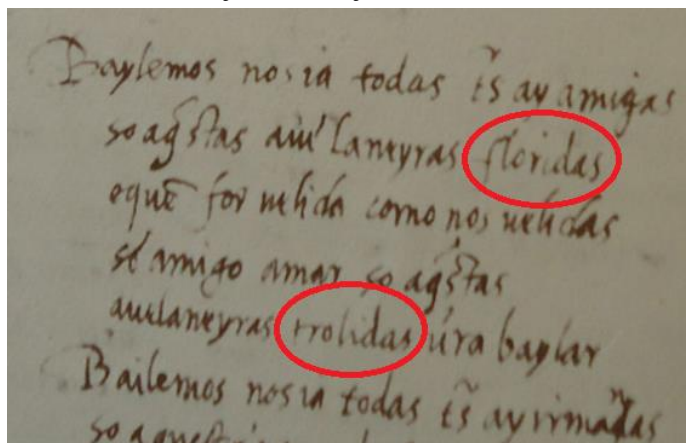 Baylemos nos ia todas tr̃s ay amigas
so aq̃stas auel'laneyras floridas
e quē for uelida como nos uelidas
se amigo amar so aq̃stas
auelaneyras frolidas uira baylar
Bailemos nos ia todas tr̃s ay irmanas